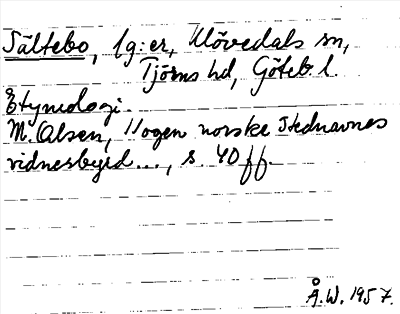 Sältebo, lg:er, Klövedals sn,
Tjörns hd, Göteb. l.
Etymologi.
M. Olsen, Nogen norske Stednavnes
vidnesbyrd..., s. 40 ff.
Å.W. 1957.